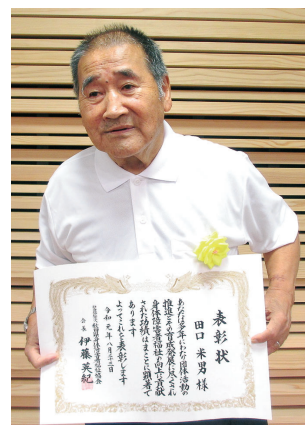 表彰状
田口 米男 様
あなたは多年にわたり団体活動の
推進とその育成発展に尽くされ
身体障害者福祉の向上に貢献
された功績はまことに顕著で
あります
よってこれを表彰します
令和元年八月二十二日
会長 伊藤英紀